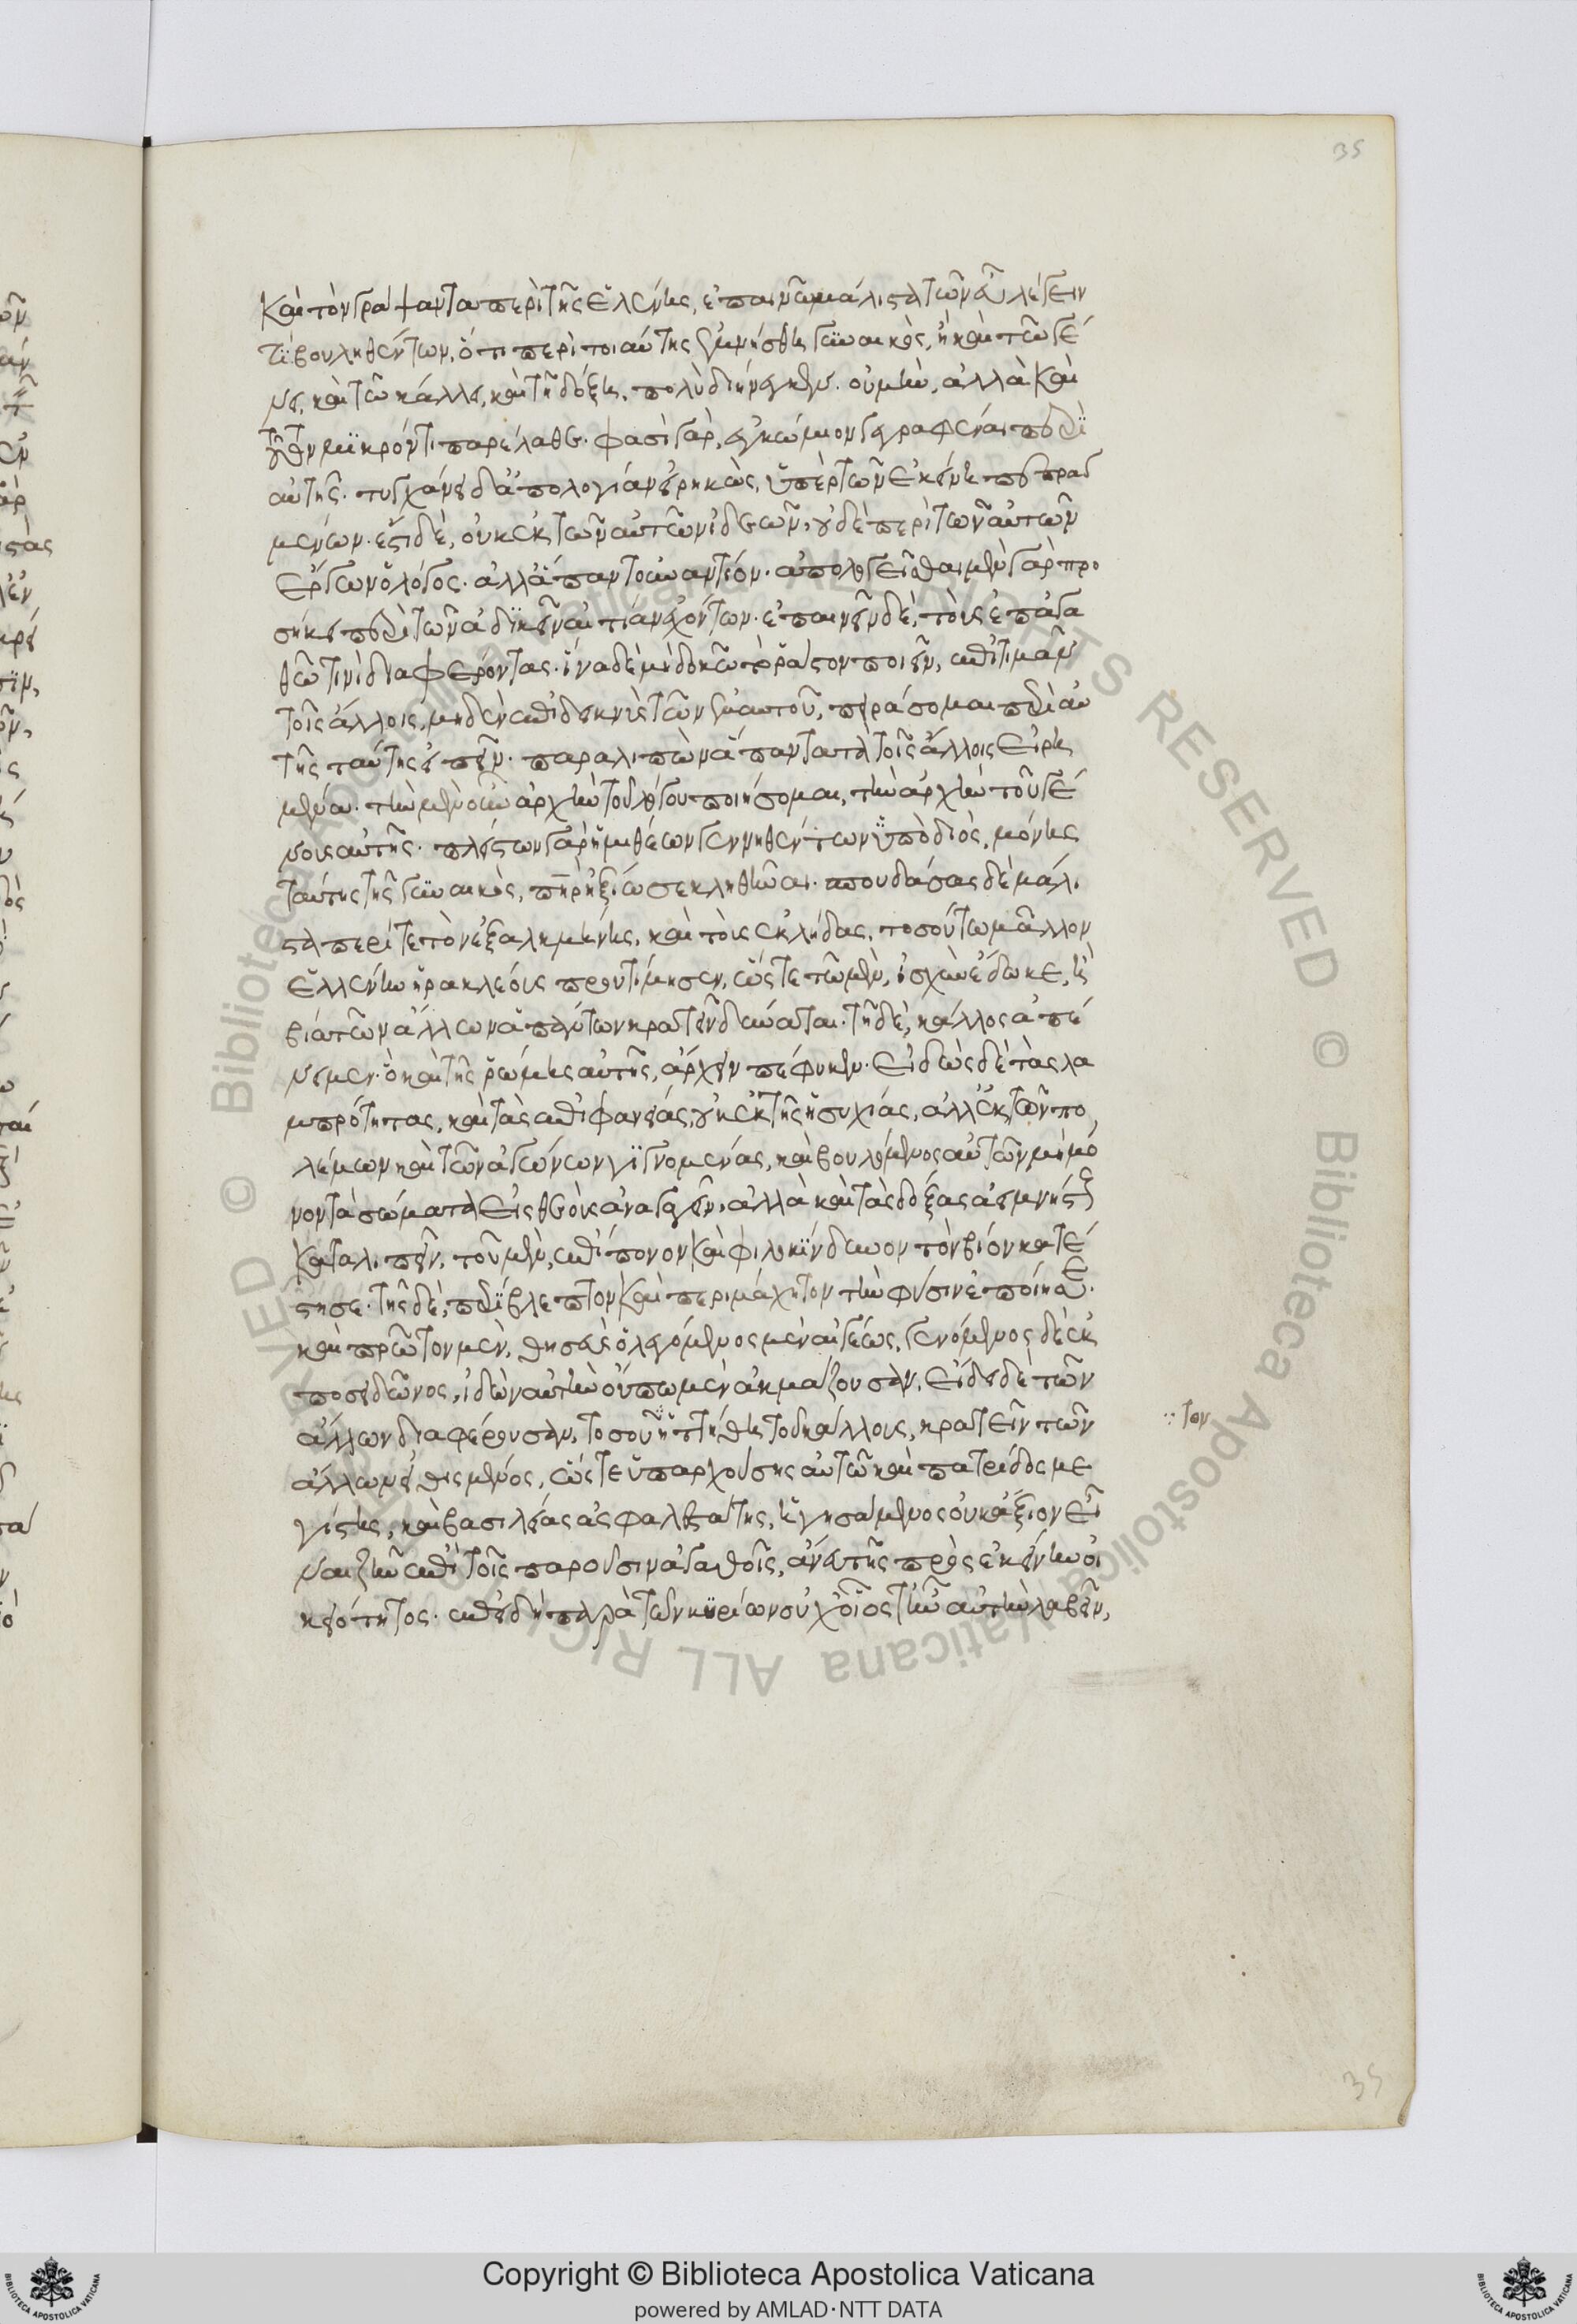 35
καὶ τὸν γράψαντα περὶ τῆς ἑλένης, ἐπαινῶ μάλιστα τῶν εὖ λέγειν
τι βουληθέντων, ὅτι περὶ τοιαύτης ἐμνήσθη γυναικὸς, ἣ καὶ τῶ γέ
νει, καὶ τῶ κάλλει, καὶ τῆ δόξη, πολὺ διήνεγκεν. οὐ μὴν, ἀλλὰ καὶ
τοῦτον μικρόν τι παρέλαθε. φασὶ γὰρ, ἐγκώμιον γεγραφέναι περὶ
αὐτῆς. τυγχάνει δ' ἀπολογίαν εἰρηκὼς, ὑπὲρ τῶν ἐκείνη πεπραγ
μένων. ἔστι δὲ, οὐκ ἐκ τῶν αὐτῶν ἰδεῶν, οὐδὲ περὶ τῶν αὐτῶν
ἔργων ὁ λόγος. ἀλλὰ πᾶν τοὐναντίον. ἀπολογεῖσθαι μὲν γὰρ προ
σήκει περὶ τῶν ἀδικεῖν αἰτίαν ἐχόντων. ἐπαινεῖν δὲ, τοὺς ἐπ' ἀγα
θῶ τινὶ διαφέροντας. ἵνα δὲ μὴ δοκῶ τὸ ῥᾶστον ποιεῖν, ἐπιτιμᾶν
τοῖς ἄλλοις, μηδὲν ἐπιδεικνὺς τῶν ἐμαυτοῦ, πειράσομαι περὶ αὐ
τῆς ταύτης εἰπεῖν. παραλιπὼν ἅπαντα τὰ τοῖς ἄλλοις εἰρη
μένα. τὴν μὲν οὖν ἀρχὴν τοῦ λόγου ποιήσομαι, τὴν ἀρχὴν τοῦ γέ
νους αὐτῆς. πλείστων γὰρ ἡμιθέων γεννηθέντων ὑπὸ διὸς, μόνης
ταύτης τῆς γυναικὸς, πατὴρ ἠξίωσε κληθῆναι. σπουδάσας δὲ μάλι
στα περί τε τὸν ἐξ ἀλκμήνης, καὶ τοὺς ἐκ λήδας, τοσούτω μᾶλλον
ἑλένην ἡρακλέους προυτίμησεν, ὥστε τῶ μὲν, ἰσχὺν ἔδωκε, ἣ
βία τῶν ἄλλων ἁπάντων κρατεῖν δύναται. τῆ δὲ, κάλλος ἀπέ
νειμεν. ὃ καὶ τῆς ῥώμης αὐτῆς, ἄρχειν πέφυκεν. εἰδὼς δὲ τὰς λα
μπρότητας, καὶ τὰς ἐπιφανείας, οὐκ ἐκ τῆς ἡσυχίας, ἀλλ' ἐκ τῶν πο
λέμων καὶ τῶν ἀγώνων γιγνομένας, καὶ βουλόμενος αὐτῶν μὴ μό
νον τὰ σώματα εἰς θεοὺς ἀναγαγεῖν, ἀλλὰ καὶ τὰς δόξας ἀειμνήστους
καταλιπεῖν, τοῦ μὲν, ἐπίπονον καὶ φιλοκίνδυνον τὸν βίον κατέ
στησε. τῆς δὲ, περίβλεπτον καὶ περιμάχητον τὴν φύσιν ἐποίησε.
καὶ πρῶτον μὲν, θησεὺς ὁ λεγόμενος μὲν αἰγέως, γενόμενος δὲ ἐκ
ποσειδῶνος, ἰδὼν αὐτὴν οὔπω μὲν ἀκμάζουσαν, εἶδε δὲ τῶν
ἄλλων διαφέρουσαν, τοσοῦ ἡττήθη τοῦ κάλλους, κρατεῖν τῶν
ἄλλων εἰθισμένος, ὥστε ὑπαρχούσης αὐτῶ καὶ πατρίδος με
γίστης, καὶ βασιλείας ἀσφαλεστάτης, ἡγησάμενος οὐκ ἄξιον εἶ
ναι ζῆν ἐπὶ τοῖς παροῦσιν ἀγαθοῖς, ἄνευ τῆς πρὸς ἐκείνην οἰ
κειότητος. ἐπειδὴ παρὰ τῶν κυρίων οὐχ οἷος τ' ἦν αὐτὴν λαβεῖν,
τον
35
Copyright © Biblioteca Apostolica Vaticana
powered by AMLAD·NTT DATA